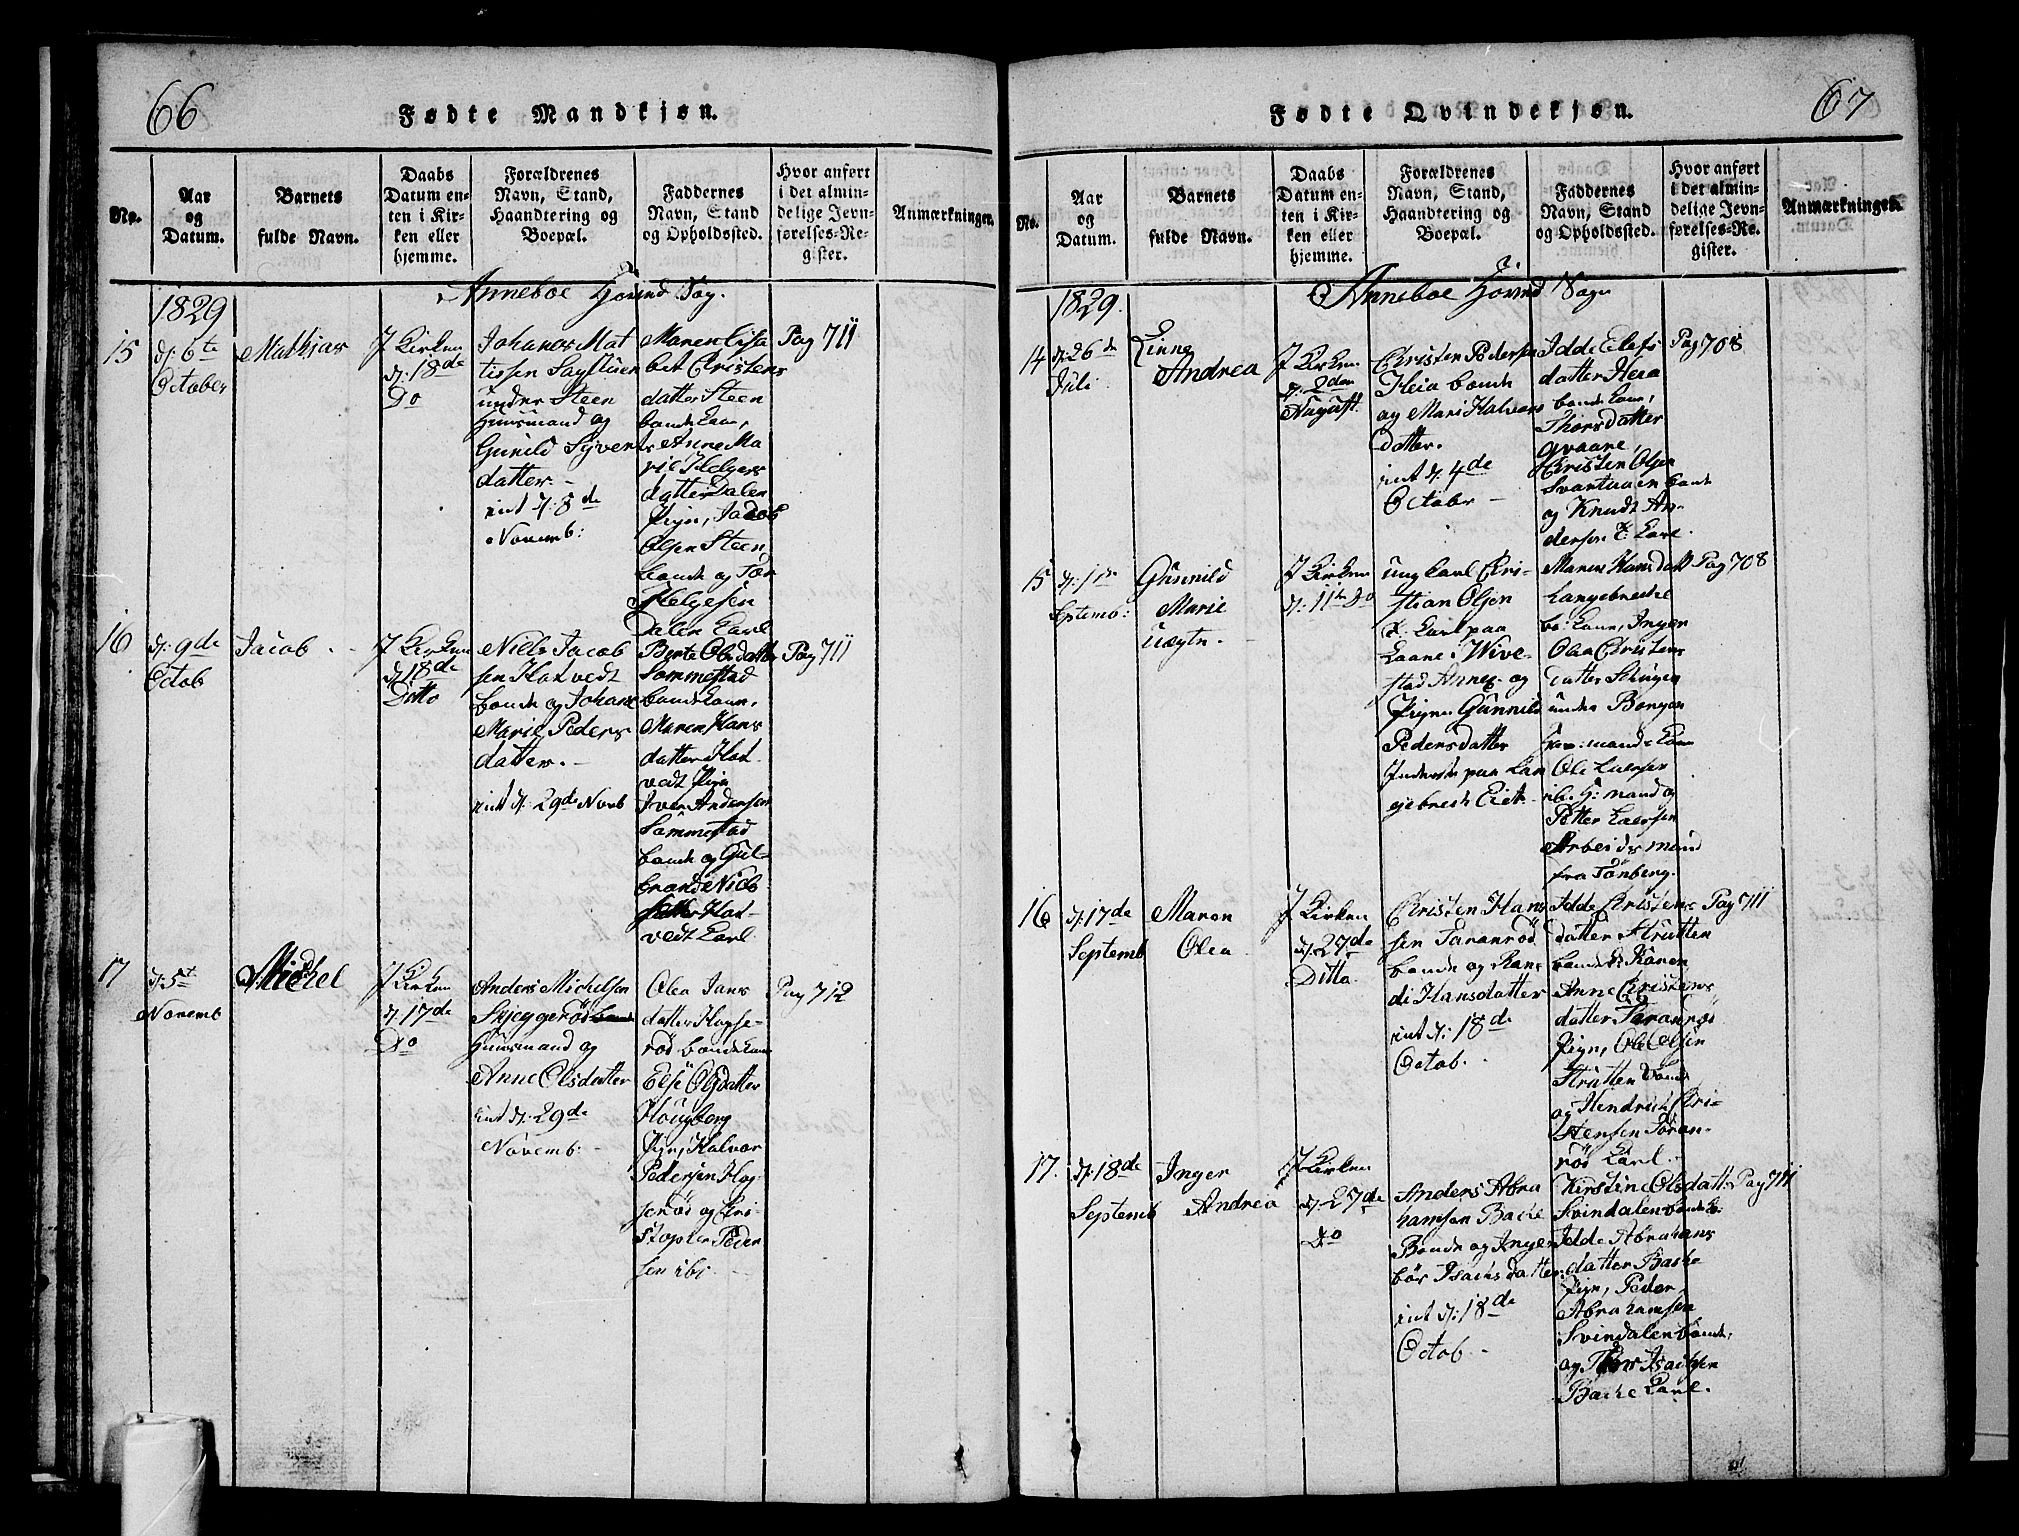 66
Fødte Mandkjøn.
No.
Aar
og
Datum.
Barnets
fulde Navn.
Daabs
Datum en-
ten i Kir-
ken eller
hjemme.
Forældrenes
Navn, Stand,
Haandtering og
Boepæl.
Faddernes
Navn, Stand
og Opholdssted.
Hvor anført
i det almin-
delige Jevn-
førelses-Re-
gister.
Anmærkninger.
1829
Anneboe Hovind Sog.
15
d. 6te
October
Mathias
J Kirken
d. 18de
Do
Johanes Mat
tissen
under Steen
Huusmand og
Gunild Syvert
datter.
int d. 8de
Novemb:
Maren Lisa
bet Christens
datter Steen
bonde Kone,
Anne Ma
rie Helges
datter Dalen
Pign, Jacob
Olsen Steen
bonde og Tor
Helgesen
Dalen Karl
Pag 711
16
d. 9de
Octob
Jacob
J Kirken
d 18de
Ditto
Niels Jacob
sen Hotvedt
bonde og Johane
Marie Peders
datter.
int d. 29de Novb
Berte Olsdatter
Sommestad
bonde Kone,
Maren Hans
datter Hot-
vedt Pign
Iver Andersen
Sommestad
bonde og Gul-
brand Niels
Hot-
vedt Karl
Pag 711
17
d. 5t
Novemb
Michel
J Kirken
d. 17de
Do
Anders Michelsen
Skjeggerød
Huusmand og
Anne Olsdatter
int d. 29de
Novemb.
Olea Jans
datter Hopse-
rød bonde Kone
Else Olsdatter
Hougberg
Pign, Halvor
Pedersen Hop-
serød og Kri-
stopher Peder
sen ibi
Pag 712
67
Fødte Qvindekjøn.
No.
Aar
og
Datum.
Barnets
fulde Navn.
Daabs
Datum en-
ten i Kir-
ken eller
hjemme.
Forældrenes
Navn, Stand,
Haandtering og
Boepæl.
Faddernes
Navn, Stand
og Opholdssted.
Hvor anført
i det almin-
delige Jevn-
førelses-Re-
gister.
Anmærkninger.
1829.
Anneboe Hovind Sogn
14
d. 26de
Juli
Linne
Andrea
J Kirken
d. 2den
August.
Christen Pedersen
Heia bonde
og Mari Halvors
datter.
int d. 4de
October
Idde Elefs
datter Heia
bonde Kone,
Thorsdatter
Christen Olsen
bonde
og Knudt An-
dersen Karl.
Pag 708
15
Septemb:
Gunnild
Marie
Uægte.
J Kirken
ungkarl Chri-
stian Olsen
Karl paa
Laane i Wive-
stad Annex og
Pigen Gunnild
Pedersdatter
Inderste paa Lan
gebrech Eiet.
Maren Hansdatt
Langebreche
bo: Kone, Inger
Olea Christens
datter
under Borgen
mands Kone
Ole Laersen
ib. H: mand og
Petter Laersen
Arbeidsmand
fra Tönberg.
Pag 708
16
d. 17de
Septemb
Maren
Olea
J Kirken
d. 27de
Ditto.
Christen Hans
sen Taranrød
bonde og Ran
di Hansdatter
int d. 18de
Octob.
Idde Christens
datter Strutten
bonde Konen
Anne Christens
datter Taranrød
Pign, Ole Olsen
Strutten bond
og Hendrich Cri-
stensen Toran-
rød Karl.
Pag 711
17.
d. 18de
Septemb
Inger
Andrea
J Kirken
d. 27de
Do
Anders Abra
hamsen Bache
Bonde og Inge
bor Isachsdatter
int d. 18de
Octob.
Kirstine Olsdatt.
Svindalen bonde K:
Idde Abrahams
datter Bache
Pign, Peder
Abrahamsen
Svindalen bonde,
og Thor Isachsen
Bache Karl.
Pag 711